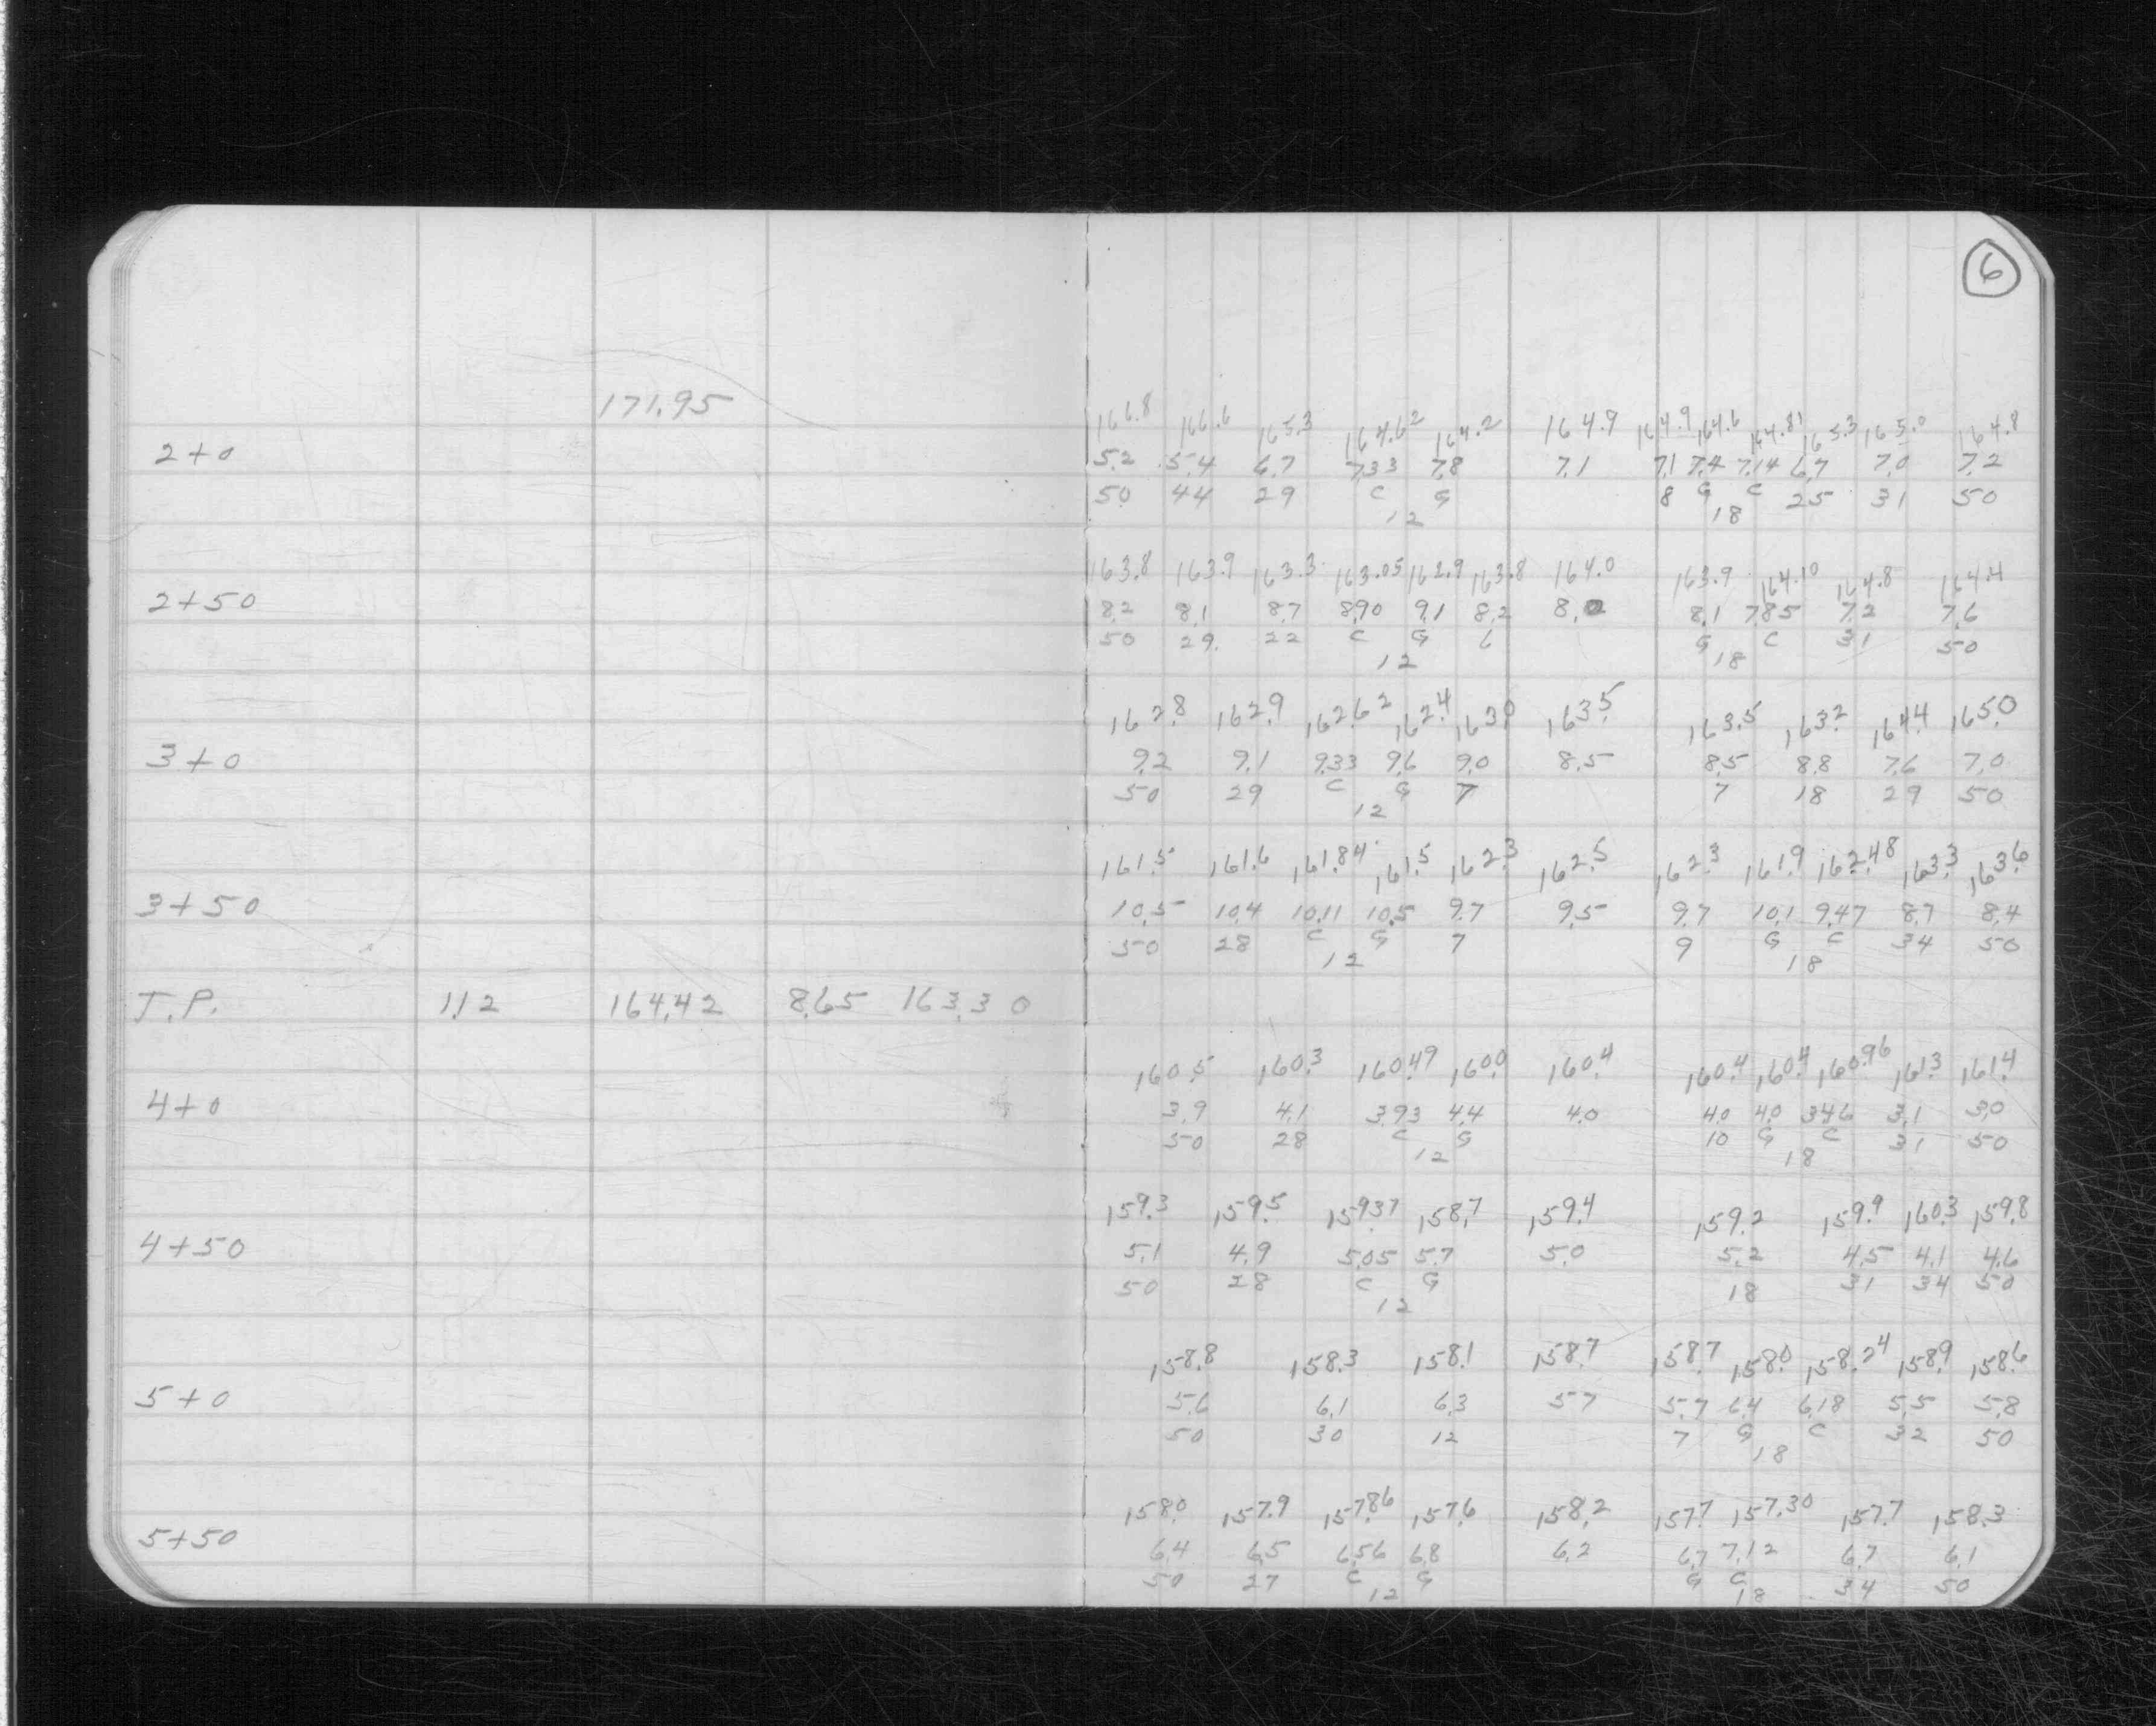 6
171.95
166.8 166.6 165.3 164.62 164.2 164.9 164.9 164.6 164.81 165.3 165.0 164.8
2+0 5.2 5.4 6.7 7.33 7.8 7.1 7.1 7.4 7.14 6.7 7.0 7.2
50 44 29 C G 8 G C 25 31 50
12 18
163.8 163.9 163.3 163.05 162.9 163.8 164.0 163.9 164.10 164.8 164.4
2+50 8.2 8.1 8.7 8.90 9.1 8.2 8.0 8.1 7.85 7.2 7.6
50 29 22 C G 6 G C 31 50
12 18
162.8 162.9 162.62 162.4 163.0 163.5 163.5 163.2 164.4 165.0
3+0 9.2 9.1 9.33 9.6 9.0 8.5 8.5 8.8 7.6 7.0
50 29 C G 7 7 18 29 50
12
161.5 161.6 161.84 161.5 162.3 162.5 162.3 161.9 162.48 163.3 163.6
3+50 10.5 10.4 10.11 10.5 9.7 9.5 9.7 10.1 9.47 8.7 8.4
50 28 C G 7 9 G C 34 50
12 18
T.P. 1.12 164.42 8.65 163.30
160.5 160.3 160.49 160.0 160.4 160.4 160.4 160.96 161.3 161.4
4+0 3.9 4.1 3.93 4.4 4.0 4.0 4.0 3.46 3.1 3.0
50 28 C G 10 G C 31 50
12 18
159.3 159.5 159.37 158.7 159.4 159.2 159.9 160.3 159.8
4+50 5.1 4.9 5.05 5.7 5.0 5.2 4.5 4.1 4.6
50 28 C G 18 31 34 50
12
158.8 158.3 158.1 158.7 158.7 158.0 158.24 158.9 158.6
5+0 5.6 6.1 6.3 5.7 5.7 6.4 6.18 5.5 5.8
50 30 12 7 G C 32 50
18
158.0 157.9 157.86 157.6 158.2 157.7 157.30 157.7 158.3
5+50 6.4 6.5 6.56 6.8 6.2 6.7 7.12 6.7 6.1
50 27 C G G C 34 50
12 18